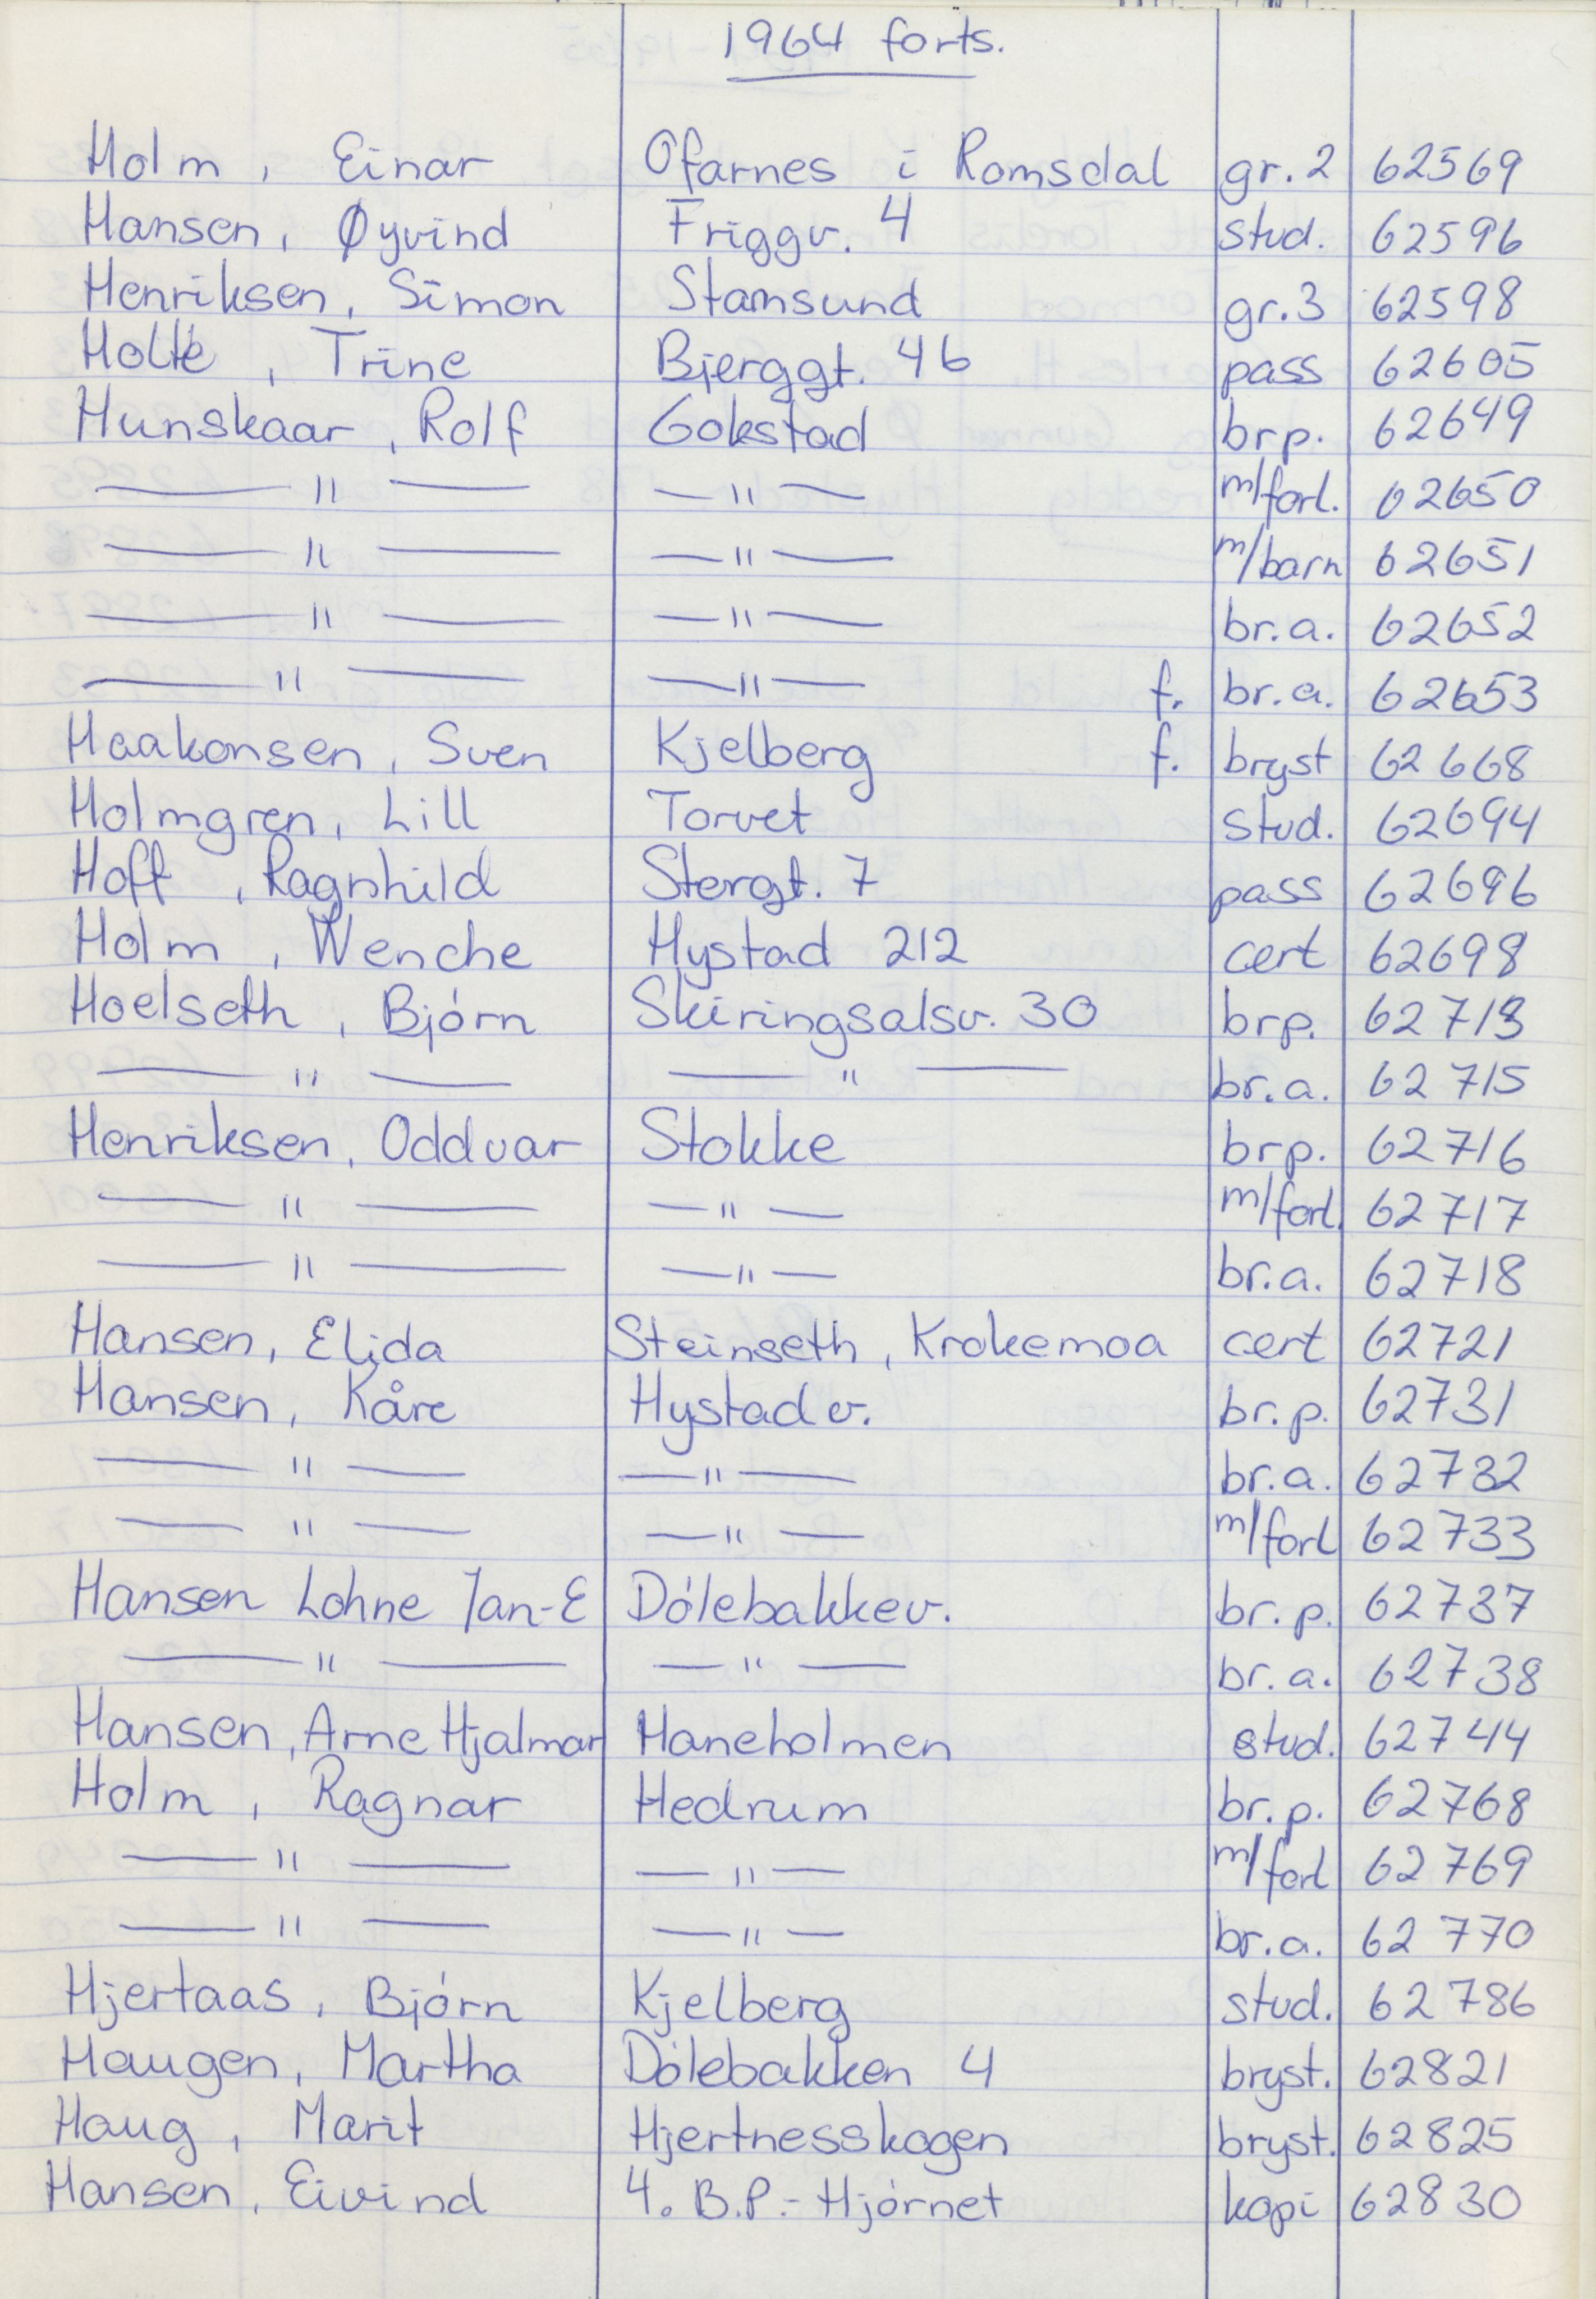 1964 forts.
Holm, Einar Ofarnes i Romsdal gr.2 62569
Hansen, Øyvind Friggv. 4 stud. 62596
Henriksen, Simon Stamsund gr.3 62598
Holte, Trine Bjerggt. 46 pass 62605
Hunskaar, Rolf Gokstad brp. 62649
— " — — " — m/forl. 62650
— " — — " — m/barn 62651
— " — — " — br.a. 62652
— " — — " — f. br.a. 62653
Haakonsen, Sven Kjelberg f. bryst 62668
Holmgren, Lill Torvet stud. 62694
Hoff, Ragnhild Stergt. 7 pass 62696
Holm, Wenche Hystad 212 cert 62698
Hoelseth, Bjørn Skiringsalsv. 30 brp. 62713
— " — — " — br.a. 62715
Henriksen, Oddvar Stokke brp. 62716
— " — — " — m/forl. 62717
— " — — " — br.a. 62718
Hansen, Elida Steinseth, Krokemoa cert 62721
Hansen, Kåre Hystadv. br.p. 62731
— " — — " — br.a. 62732
— " — — " — m/forl 62733
Hansen Lohne Jan-E Dølebakkev. br.p. 62737
— " — — " — br.a. 62738
Hansen, Arne Hjalmar Haneholmen stud. 62744
Holm, Ragnar Hedrum br.p. 62768
— " — — " — m/forl 62769
— " — — " — br.a. 62770
Hjertaas, Bjørn Kjelberg stud. 62786
Haugen, Martha Dølebakken 4 bryst. 62821
Haug, Marit Hjertnesskogen bryst. 62825
Hansen, Eivind 4. B.P.-Hjørnet kopi 62830